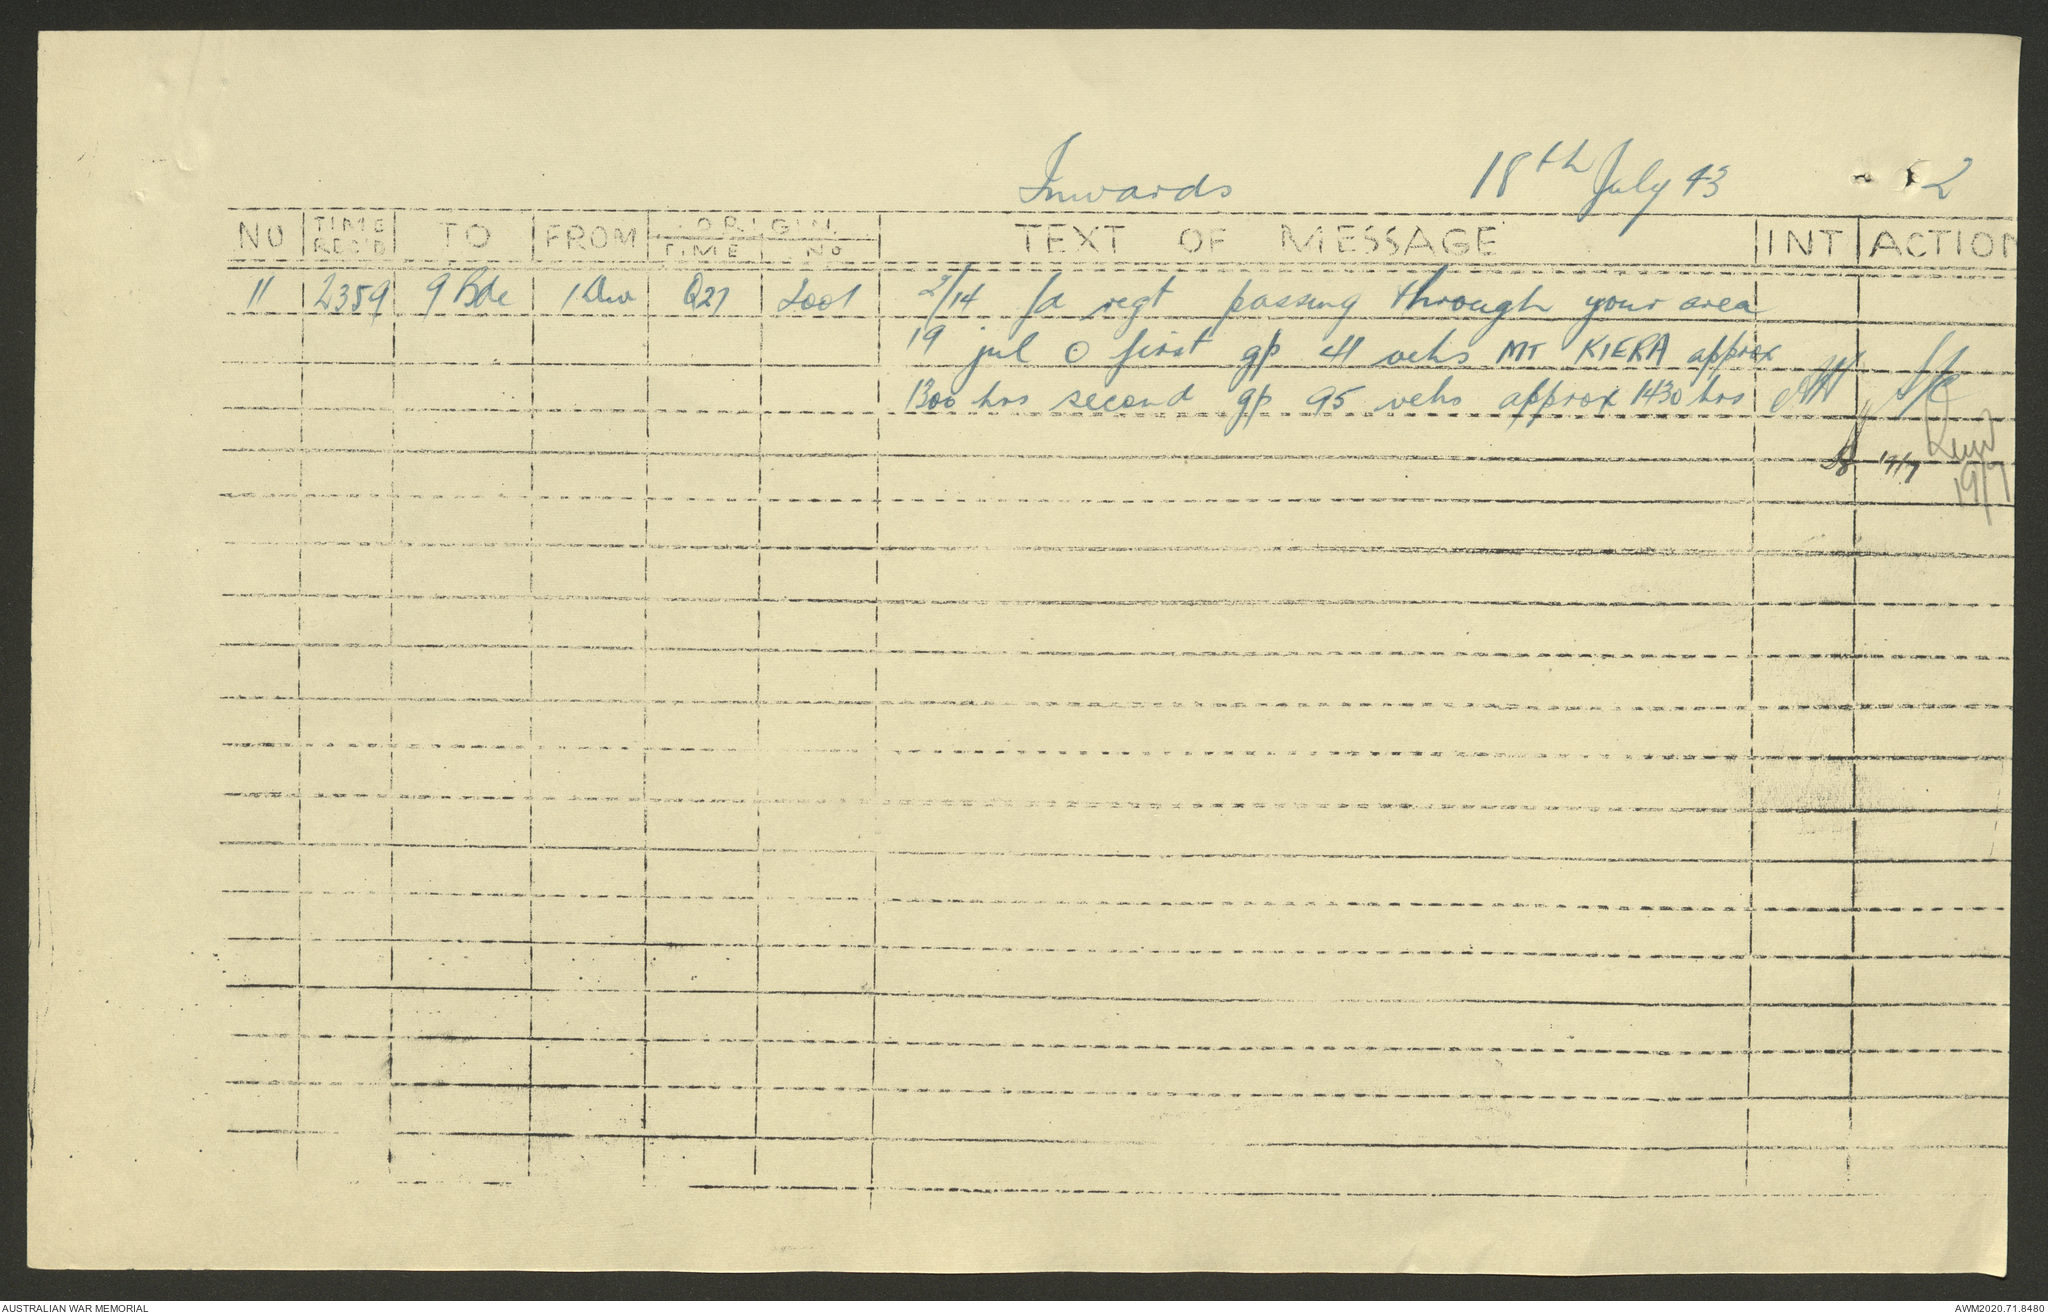 Inwards 18th July 43 2
NO TIME REC'D TO FROM ORIGIN TIME NO TEXT OF MESSAGE INT ACTION
11 2359 9 Bde 1 Div Q27 2001 2/14 fd regt passing through your area
19 jul O first gp 41 vehs MT KIERA approx
1300 hrs second gp 95 vehs approx 1430 hrs S/C
19/7
19/7
AUSTRALIAN WAR MEMORIAL AWM2020.71.8480